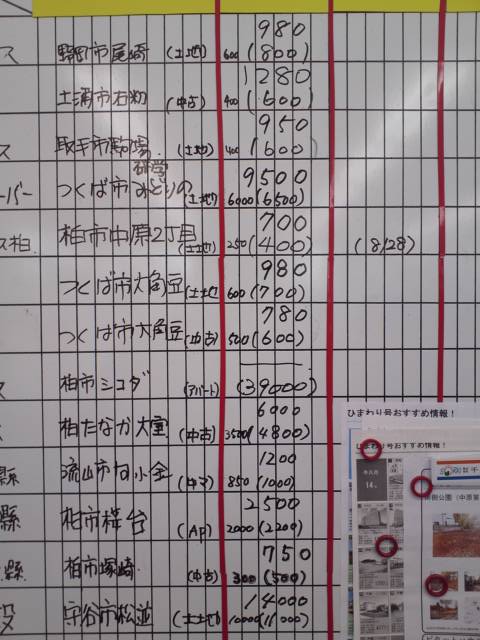 ス 野田市尾崎 (土地) 600 980 (800)
土浦市右籾 (中古) 400 1280 (600)
ス 取手市駒場 (土地) 400 950 (600
ーバー つくば市 研究学 みどりの (土地) 6000 9500 (6500)
ス柏 柏市中原2丁目 (土地) 250 700 (400) (8/28)
つくば市大角豆 (土地 600 980 (700)
つくば市大角豆 (中古) 500 780 (600)
ス 柏市シコダ (アパート) (39000)
柏たなか大室 (中古) 3500 6000 (4800)
縣 流山市向小金 (中マ) 850 1200 (1000)
縣 柏市桜台 (AP) 2000 2500 (2200)
縣 柏市塚崎 (中古) 300 750 (500)
設 守谷市松並 (土地) 10000 14000 (11000)
ひまわり号おすすめ情報!
ひまわり号おすすめ情報!